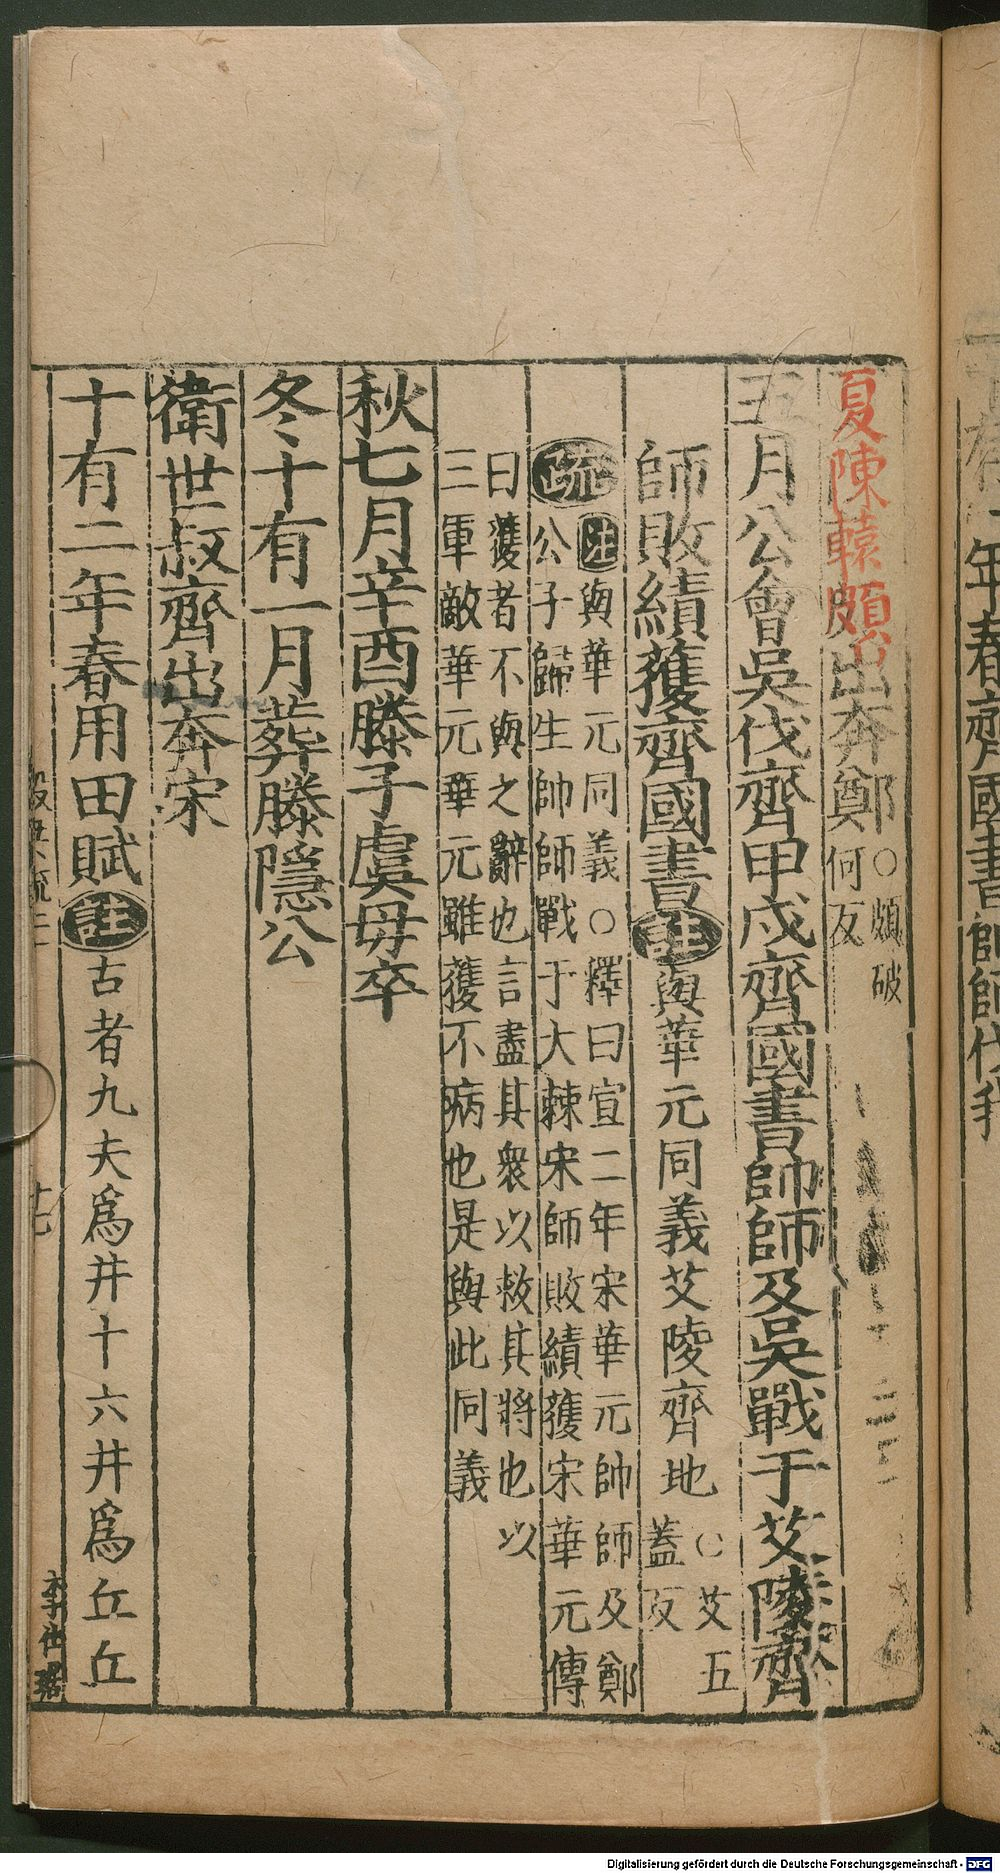 夏陳轅頗出奔鄭○頗破
何反
五月公會吳伐齊甲戌齊國書帥師及吳戰于艾陵齊
師敗績獲齊國書註與華元同義艾陵齊地○艾五
蓋反
疏注與華元同義○釋曰宣二年宋華元帥師及鄭
公子歸生帥師戰于大棘宋師敗績獲宋華元傳
曰獲者不與之辭也言盡其衆以救其將也以
三軍敵華元華元雖獲不病也是與此同義
秋七月辛酉滕子虞毋卒
冬十有一月葬滕隱公
衛世叔齊出奔宋
十有二年春用田賦註古者九夫爲井十六井爲丘丘
十七
年春齊國書帥師伐我
Digitalisierung gefördert durch die Deutsche Forschungsgemeinschaft - DFG